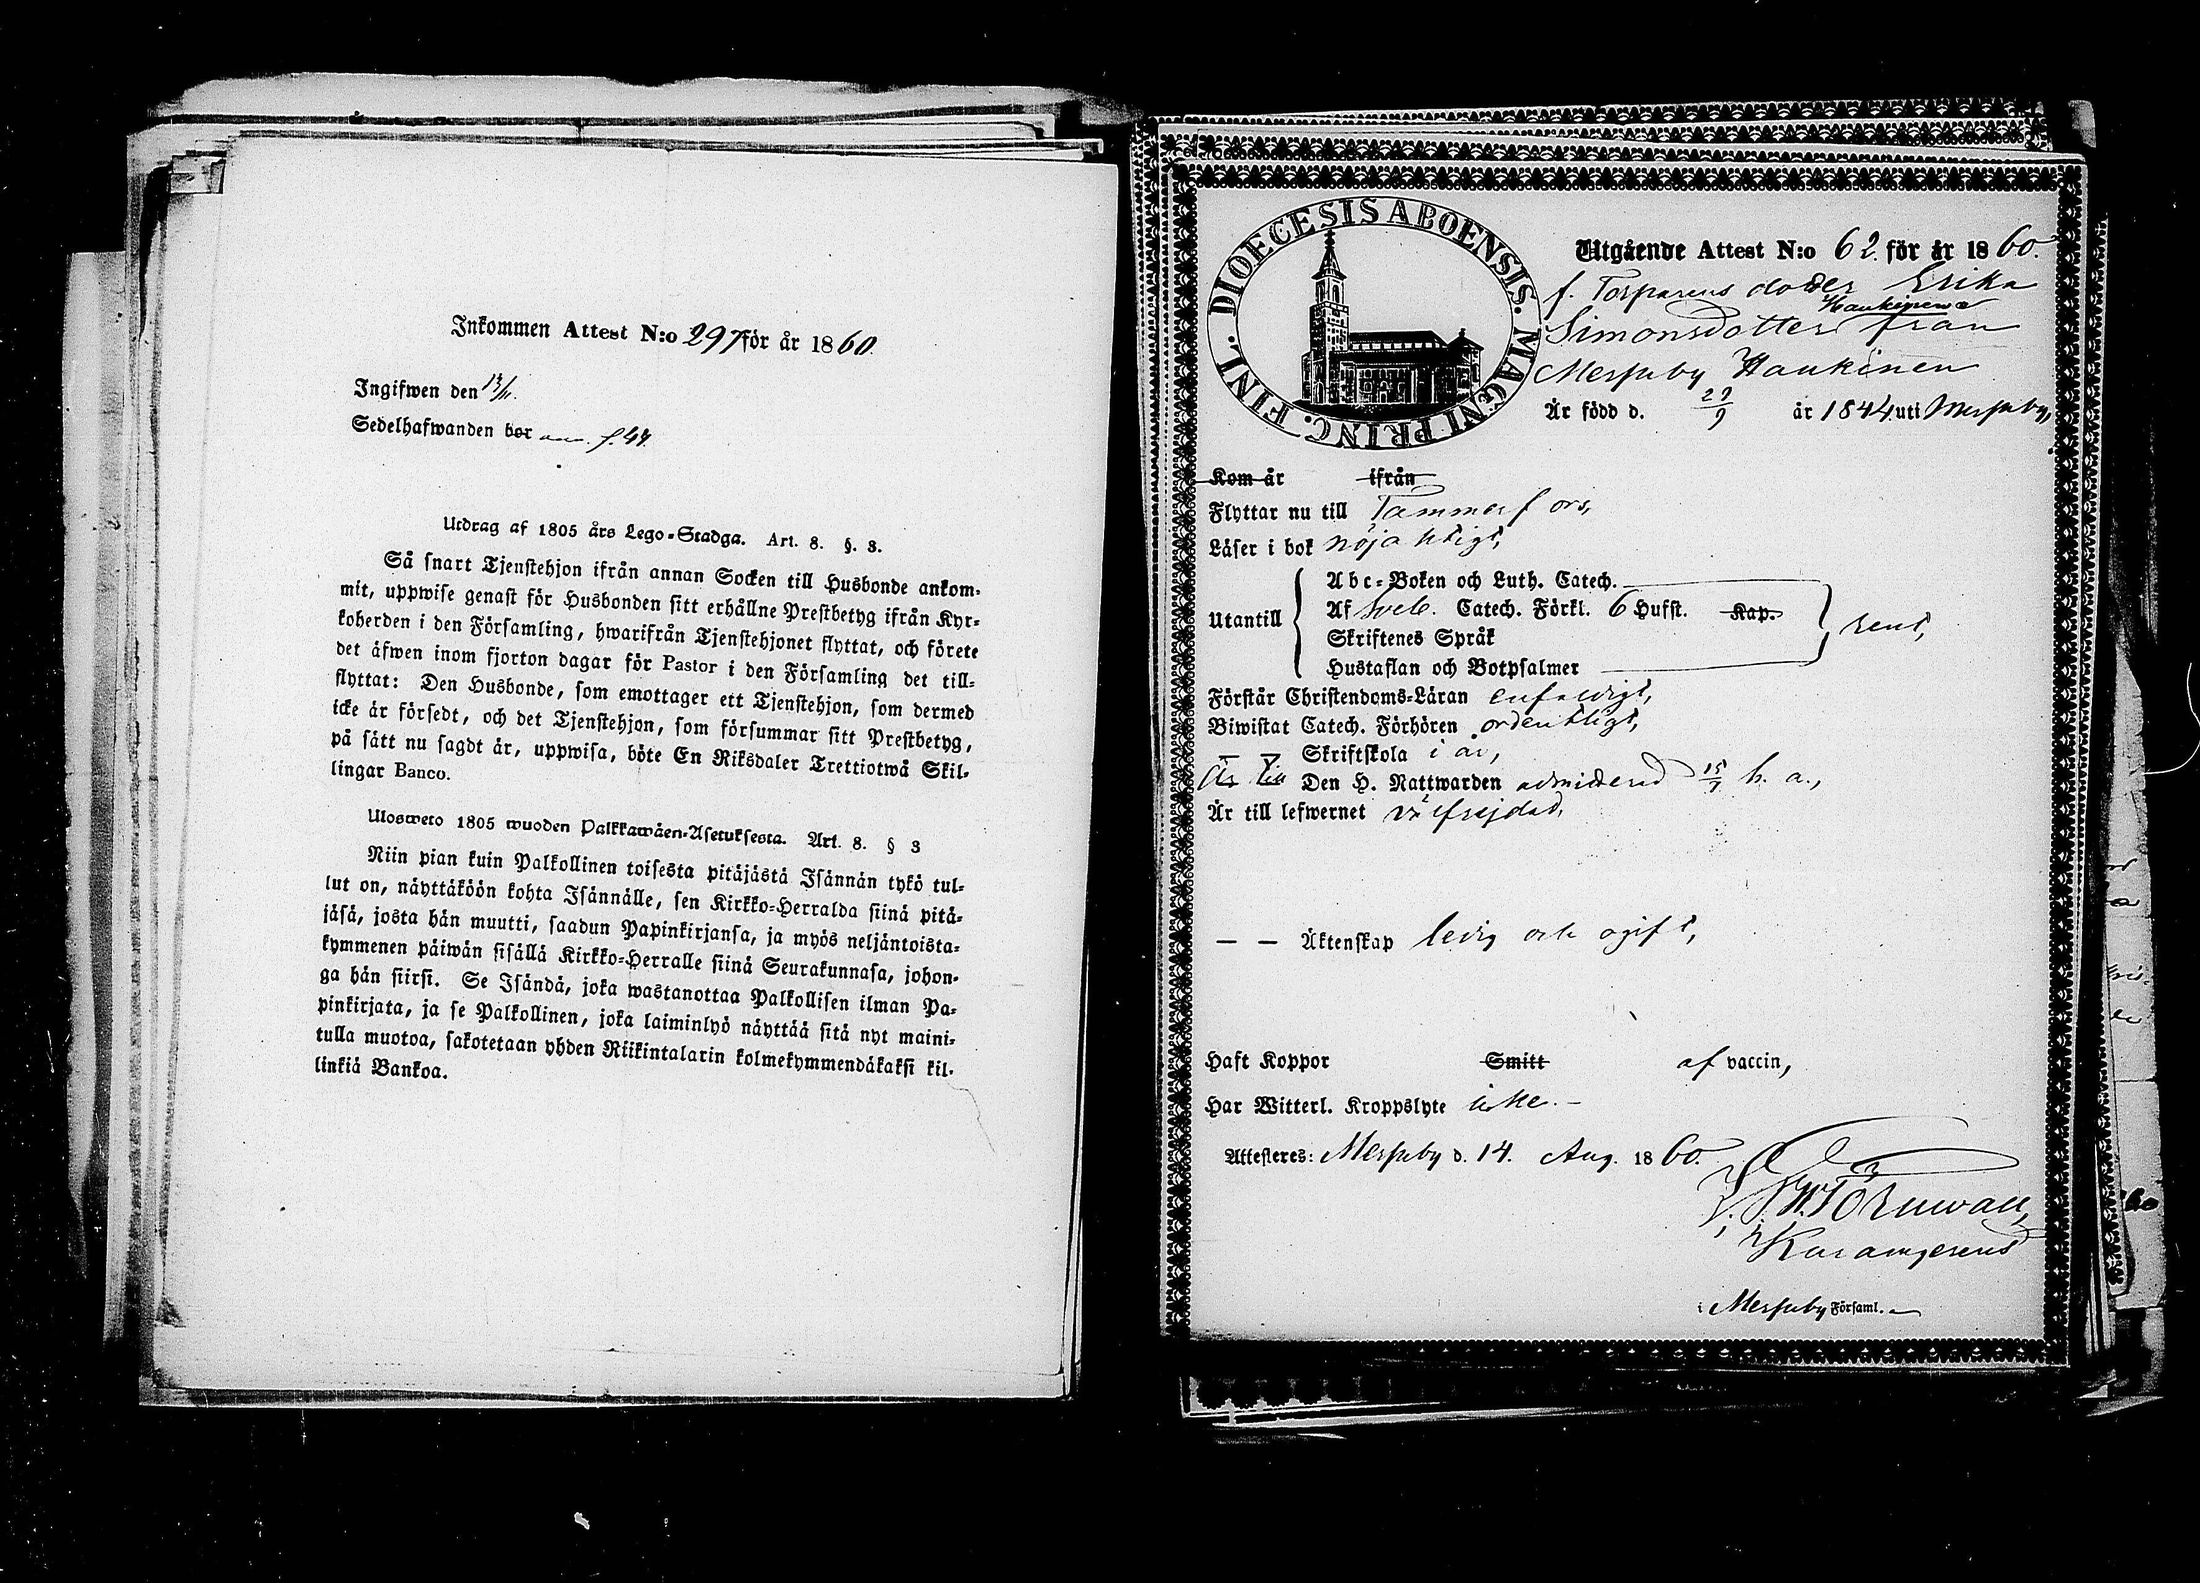 Inkommen Attest N:o 297 för år 1860.
Ingifwen den 13/11.
Sedelhafwanden bor ann. f. 44.
Utdrag af 1805 års Lego-Stadga. Art. 8. §. 3.
Så snart Tjenstehjon ifrån annan Socken till Husbonde ankom-
mit, uppwise genast för Husbonden sitt erhållne Prestbetyg ifrån Kyr-
koherden i den Församling, hwarifrån Tjenstehjonet flyttat, och förete
det äfwen inom fjorton dagar för Pastor i den Församling det till-
flyttat: Den Husbonde, som emottager ett Tjenstehjon, som dermed
icke är försedt, och det Tjenstehjon, som försummar sitt Prestbetyg,
på sätt nu sagdt är, uppwisa, böte En Riksdaler Trettiotwå Skil-
lingar Banco.
Ulosweto 1805 wuoden Palkkawäen-Asetuksesta. Art. 8. § 3
Niin pian kuin Palkollinen toisesta pitäjästä Isännän tykö tul-
lut on, näyttäköön kohta Isännälle, sen Kirkko-Herralda siinä pitä-
jäsä, josta hän muutti, saadun Papinkirjansa, ja myös neljäntoista-
kymmenen päiwän sisällä Kirkko-Herralle siinä Seurakunnasa, johon-
ga hän siirsi. Se Isändä, joka wastanottaa Palkollisen ilman Pa-
pinkirjata, ja se Palkollinen, joka laiminlyö näyttää sitä nyt maini-
tulla muotoa, sakotetaan yhden Riikintalarin kolmekymmendäkaksi kil-
linkiä Bankoa.
DIOECESIS ABOENSIS. MAGNI PRINC. FINL.
Utgående Attest N:o 62. för år 1860.
f. Torparens dotter Erika
Haukinewa
Simonsdotter från
Messuby Haukinen
Är född d. 29/9 år 1844 uti Messuby,
Kom år ifrån
Flyttar nu till Tammerfors,
Läser i bok nöjaktigt,
Utantill
Abc-Boken och Luth. Catech.
Af Sveb. Catech. Förkl. 6 Hufst. Kap.
Skriftenes Språk
Hustaflan och Botpsalmer
rent,
Förstår Christendoms-Läran enfaldigt,
Biwistat Catech. Förhören ordentligt,
— — Skriftskola i år,
Är till Den H. Nattwarden admitterad 15/7 h. a.,
Är till lefwernet välfrejdad,
— — Äktenskap ledig och ogift,
Haft Koppor Smitt af vaccin,
Har Witterl. Kroppslyte icke. —
Attesteres: Messuby d. 14. Aug. 1860.
Törnwall,
i Messuby Församl. —